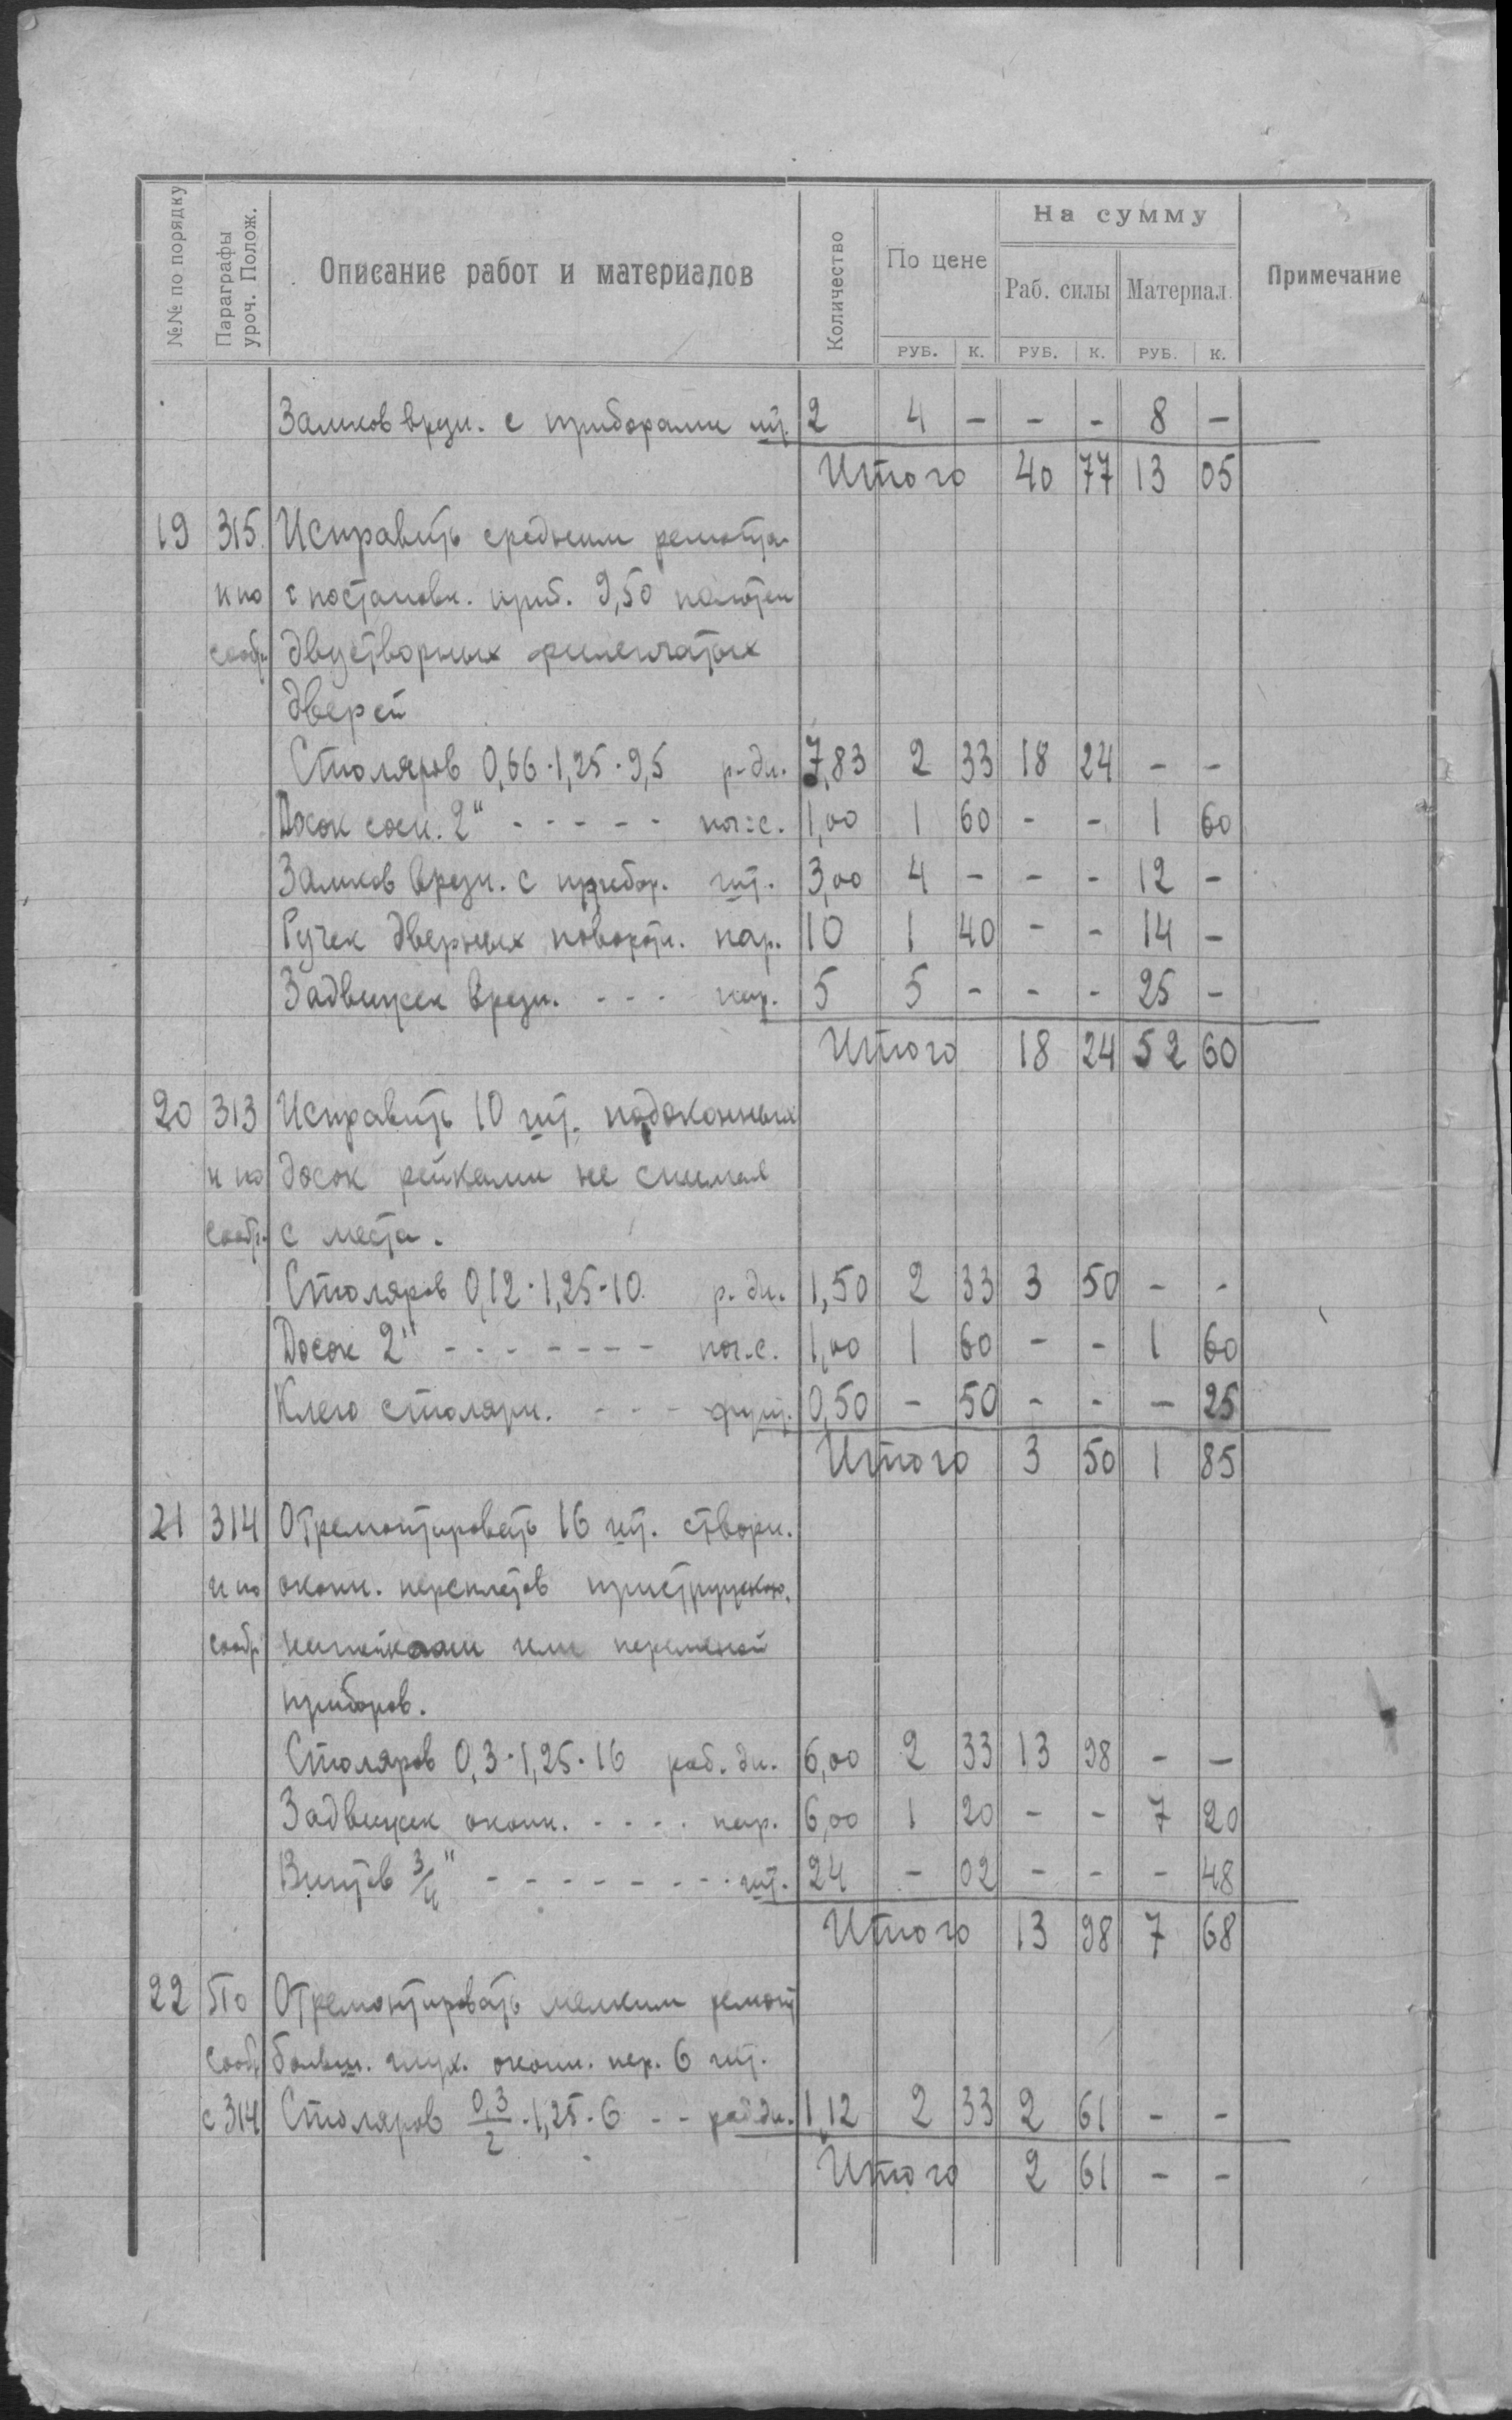 №№ по порядку
Параграфы уроч. Полож.
Описание работ и материалов
Количество
По цене
На сумму
Раб. силы Материал
Примечание
РУБ. К. РУБ. К. РУБ. К.
Замков врезн. с приборами шт. 2 4 – – – 8 –
Итого 40 77 13 05
19 315 Исправить средним ремонтом
и по с постановк. приб. 9,50 полотен
сообр. двустворных филенчатых
дверей
Столяров 0,66·1,25·9,5 р-дн. 7,83 2 33 18 24 – –
Досок сосн. 2" - - - - - пог.с. 1,00 1 60 – – 1 60
Замков врезн. с прибор. шт. 3,00 4 – – – 12 –
Ручек дверных поворотн. пар. 10 1 40 – – 14 –
Задвижек врезн. - - - пар. 5 5 – – – 25 –
Итого 18 24 52 60
20 313 Исправить 10 шт. подоконных
и по досок рейками не снимая
сообр. с места.
Столяров 0,12·1,25·10 р.дн. 1,50 2 33 3 50 – –
Досок 2" - - - - - - - пог.с. 1,00 1 60 – – 1 60
Клею столярн. - - - фунт. 0,50 – 50 – – – 25
Итого 3 50 1 85
21 314 Отремонтировать 16 шт. створн.
и по оконн. переплетов пристружкою,
сообр. или переменой
приборов.
Столяров 0,3·1,25·16 раб. дн. 6,00 2 33 13 98 – –
Задвижек оконн. - - - - пар. 6,00 1 20 – – 7 20
Винтов 3/4" - - - - - - - - шт. 24 – 02 – – – 48
Итого 13 98 7 68
22 По Отремонтировать мелким ремонт
сообр. больш. глух. оконн. пер. 6 шт.
с 314 Столяров 0,3/2·1,25·6 - - раб.дн. 1,12 2 33 2 61 – –
Итого 2 61 – –